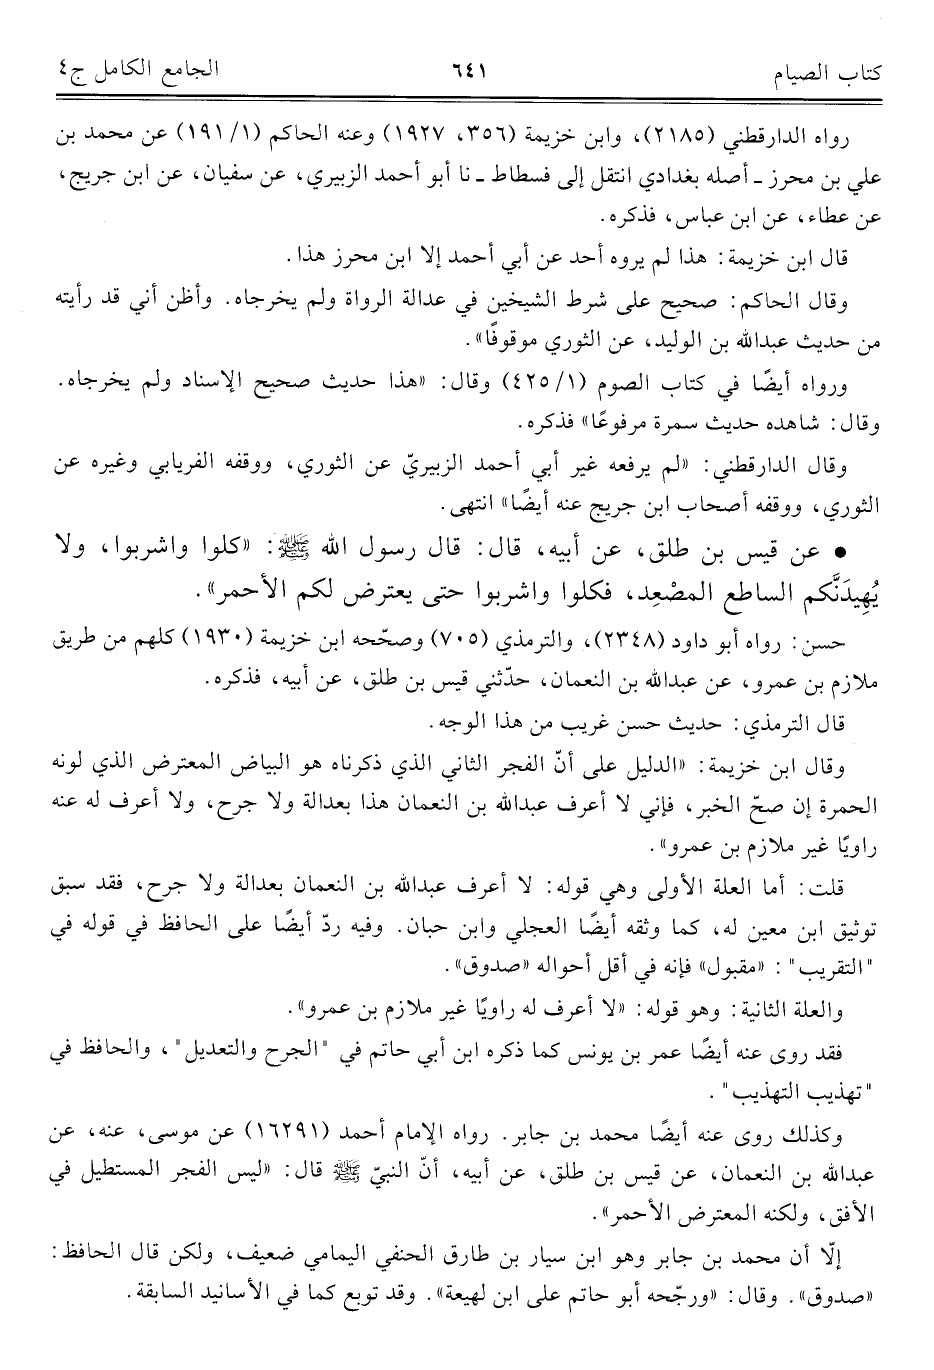 كتاب الصيام ٦٤١ الجامع الكامل ج٤
رواه الدارقطني (٢١٨٥)، وابن خزيمة (٣٥٦، ١٩٢٧) وعنه الحاكم (١/ ١٩١) عن محمد بن
علي بن محرز ـ أصله بغدادي انتقل إلى فسطاط ـ نا أبو أحمد الزبيري، عن سفيان، عن ابن جريج،
عن عطاء، عن ابن عباس، فذكره.
قال ابن خزيمة: هذا لم يروه أحد عن أبي أحمد إلا ابن محرز هذا.
وقال الحاكم: صحيح على شرط الشيخين في عدالة الرواة ولم يخرجاه. وأظن أني قد رأيته
من حديث عبدالله بن الوليد، عن الثوري موقوفًا».
ورواه أيضًا في كتاب الصوم (١/ ٤٢٥) وقال: «هذا حديث صحيح الإسناد ولم يخرجاه.
وقال: شاهده حديث سمرة مرفوعًا» فذكره.
وقال الدارقطني: «لم يرفعه غير أبي أحمد الزبيريّ عن الثوري، ووقفه الفريابي وغيره عن
الثوري، ووقفه أصحاب ابن جريج عنه أيضًا» انتهى.
• عن قيس بن طلق، عن أبيه، قال: قال رسول الله ﷺ: «كلوا واشربوا، ولا
يُهِيدَنَّكم الساطع المصْعِد، فكلوا واشربوا حتى يعترض لكم الأحمر».
حسن: رواه أبو داود (٢٣٤٨)، والترمذي (٧٠٥) وصحّحه ابن خزيمة (١٩٣٠) كلهم من طريق
ملازم بن عمرو، عن عبدالله بن النعمان، حدّثني قيس بن طلق، عن أبيه، فذكره.
قال الترمذي: حديث حسن غريب من هذا الوجه.
وقال ابن خزيمة: «الدليل على أنّ الفجر الثاني الذي ذكرناه هو البياض المعترض الذي لونه
الحمرة إن صحّ الخبر، فإني لا أعرف عبدالله بن النعمان هذا بعدالة ولا جرح، ولا أعرف له عنه
راويًا غير ملازم بن عمرو».
قلت: أما العلة الأولى وهي قوله: لا أعرف عبدالله بن النعمان بعدالة ولا جرح، فقد سبق
توثيق ابن معين له، كما وثقه أيضًا العجلي وابن حبان. وفيه ردّ أيضًا على الحافظ في قوله في
"التقريب": «مقبول» فإنه في أقل أحواله «صدوق».
والعلة الثانية: وهو قوله: «لا أعرف له راويًا غير ملازم بن عمرو».
فقد روى عنه أيضًا عمر بن يونس كما ذكره ابن أبي حاتم في "الجرح والتعديل"، والحافظ في
"تهذيب التهذيب".
وكذلك روى عنه أيضًا محمد بن جابر. رواه الإمام أحمد (١٦٢٩١) عن موسى، عنه، عن
عبدالله بن النعمان، عن قيس بن طلق، عن أبيه، أنّ النبيّ ﷺ قال: «ليس الفجر المستطيل في
الأفق، ولكنه المعترض الأحمر».
إلّا أن محمد بن جابر وهو ابن سيار بن طارق الحنفي اليمامي ضعيف، ولكن قال الحافظ:
«صدوق». وقال: «ورجّحه أبو حاتم على ابن لهيعة». وقد توبع كما في الأسانيد السابقة.